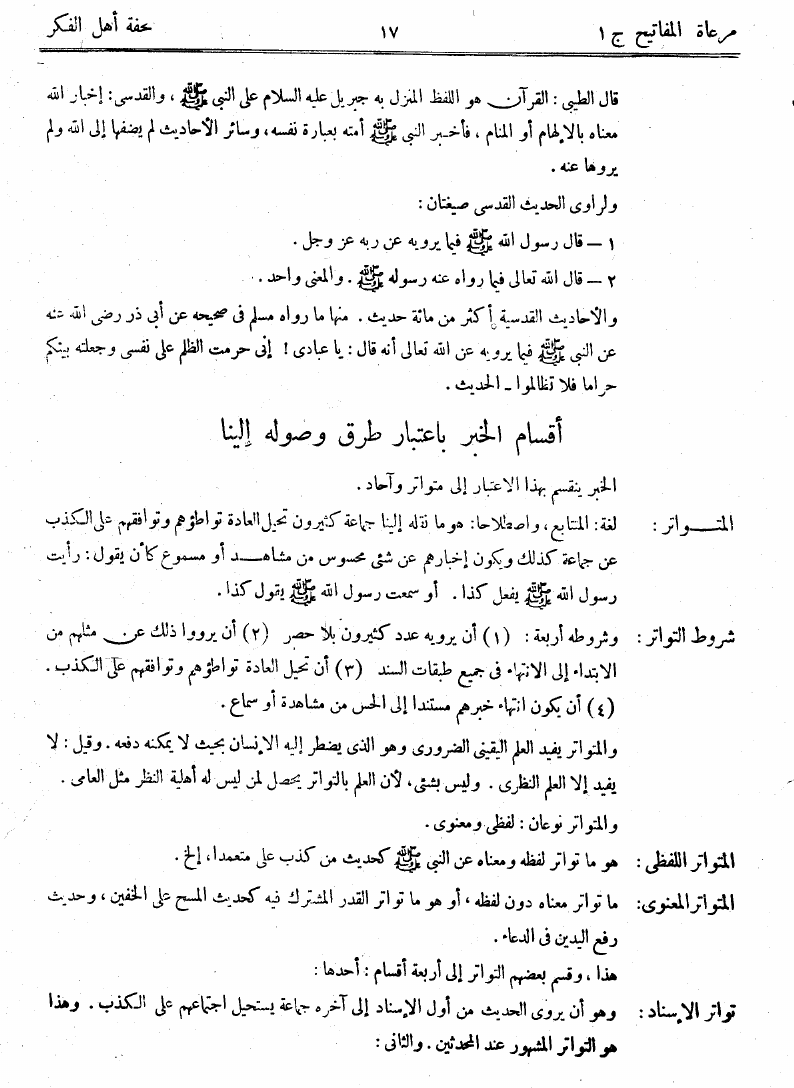 مرعاة المفاتيح ج ١ ١٧ تحفة أهل الفكر
قال الطيبى : القرآن هو اللفظ المنزل به جبريل عليه السلام على النبى ﷺ ، والقدسى : إخبار الله
معناه بالإلهام أو المنام ، فأخبر النبى ﷺ أمته بعبارة نفسه، وسائر الأحاديث لم يضفها إلى الله ولم
يروها عنه .
ولراوى الحديث القدسى صيغتان :
١ — قال رسول الله ﷺ فيما يرويه عن ربه عز وجل .
٢ — قال الله تعالى فيما رواه عنه رسوله ﷺ . والمعنى واحد .
والأحاديث القدسية أكثر من مائة حديث . منها ما رواه مسلم فى صحيحه عن أبى ذر رضى الله عنه
عن النبى ﷺ فيما يرويه عن الله تعالى أنه قال : يا عبادى ! إنى حرمت الظلم على نفسى وجعلته بينكم
حراما فلا تظالموا ـ الحديث .
أقسام الخبر باعتبار طرق وصوله إلينا
الخبر ينقسم بهذا الاعتبار إلى متواتر وآحاد .
المتـواتر : لغة : المتتابع، واصطلاحا: هو ما نقله إلينا جماعة كثيرون تحيل العادة تواطؤهم وتوافقهم على الكذب
عن جماعة كذلك ويكون إخبارهم عن شئى محسوس من مشاهد أو مسموع كأن يقول : رأيت
رسول الله ﷺ يفعل كذا . أو سمعت رسول الله ﷺ يقول كذا .
شروط التواتر : وشروطه أربعة : (١) أن يرويه عدد كثيرون بلا حصر (٢) أن يرووا ذلك عن مثلهم من
الابتداء إلى الانتهاء فى جميع طبقات السند (٣) أن تحيل العادة تواطؤهم وتوافقهم على الكذب .
(٤) أن يكون انتهاء خبرهم مستندا إلى الحس من مشاهدة أو سماع .
والمتواتر يفيد العلم اليقينى الضرورى وهو الذى يضطر إليه الإنسان بحيث لا يمكنه دفعه . وقيل : لا
يفيد إلا العلم النظرى . وليس بشئى، لأن العلم بالتواتر يحصل لمن ليس له أهلية النظر مثل العامى .
والمتواتر نوعان : لفظى ومعنوى .
المتواتر اللفظى : هو ما تواتر لفظه ومعناه عن النبى ﷺ كحديث من كذب على متعمدا، إلخ .
المتواتر المعنوى: ما تواتر معناه دون لفظه ، أو هو ما تواتر القدر المشترك فيه كحديث المسح على الخفين ، وحديث
رفع اليدين فى الدعاء .
هذا ، وقسم بعضهم التواتر إلى أربعة أقسام : أحدها :
تواتر الإسناد : وهو أن يروى الحديث من أول الإسناد إلى آخره جماعة يستحيل اجتماعهم على الكذب . وهذا
هو التواتر المشهور عند المحدثين . والثانى :